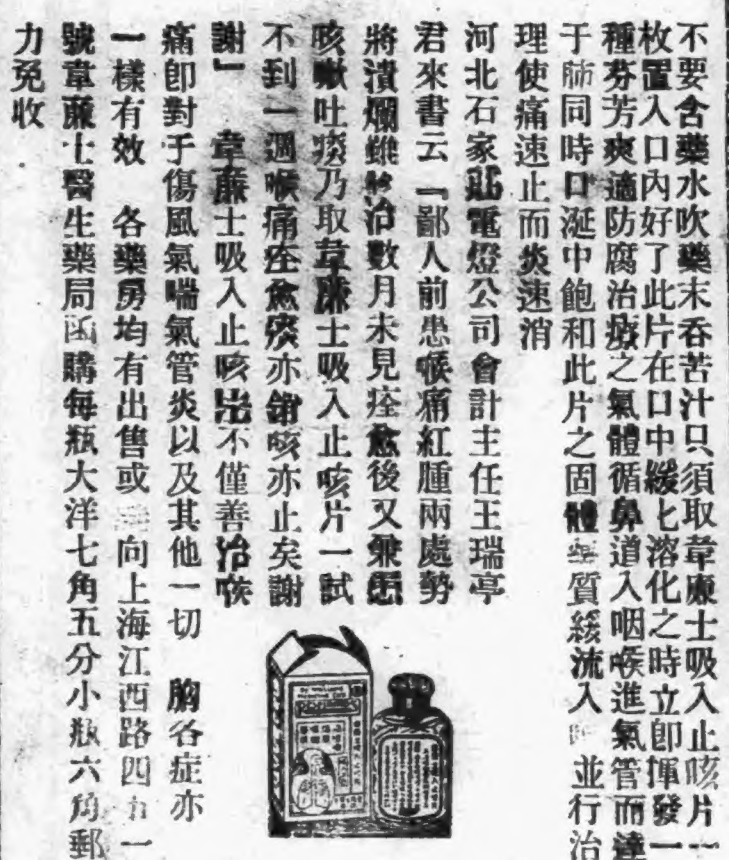 不要含藥水吹藥末吞苦汁只須取韋廉士吸入止咳片一
枚置入口內好了此片在口中緩匕溶化之時立卽揮發一
種芬芳爽適防腐治療之氣體循鼻道入咽喉進氣管而達
于肺同時口涎中飽和此片之固體 質緩流入 並行治
理使痛速止而炎速消
河北石家 電燈公司會計主任王瑞亭
君來書云『鄙人前患喉痛紅腫兩處勢
將潰爛 治數月未見痊愈後又兼患
咳嗽吐痰乃取韋廉士吸入止咳片一試
不到一週喉痛痊愈痰亦銷咳亦止矣謝
謝』 韋廉士吸入止咳 不僅善治喉
痛卽對于傷風氣喘氣管炎以及其他一切 胸各症亦
一樣有效 各藥房均有出售或 向上海江西路四 一
號韋廉士醫生藥局函購每瓶大洋七角五分小瓶六角郵
力免收